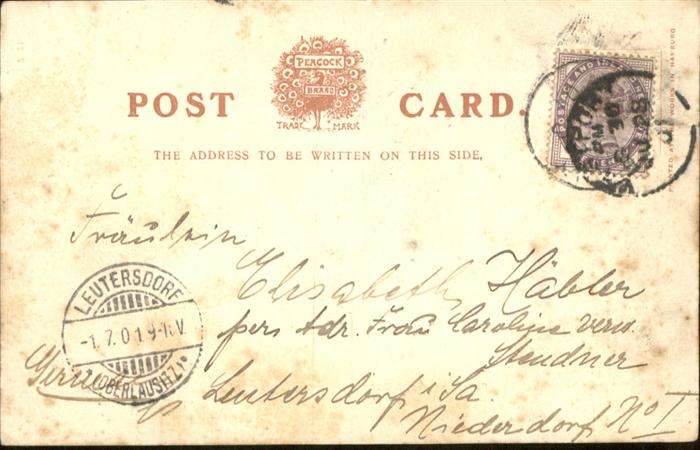 PEACOCK
BRAND
POST CARD.
TRADE MARK
THE ADDRESS TO BE WRITTEN ON THIS SIDE,
POSTAGE AND INLAND
JU 28
01
Fräulein
Elisabeth Häbler
pers Adr. Frau Caroline verw.
Steudner
Leutersdorf i Sa.
Niederdorf No I
LEUTERSDORF
-1.7.01 9-1.V.
*(OBERLAUSITZ)*